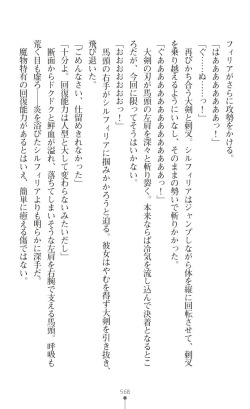 フィリアがさらに攻勢をかける。
「はぁあああああああ！」
「ぐ……ぬ……っ！」
再びかち合う大剣と刺叉。シルフィリアはジャンプしながら体を縦に回転させて、刺叉
を乗り越えるようにいなし、そのままの勢いで斬りかかった。
「ぐあああああああああっ！」
大剣の刃が馬頭の左肩を深々と斬り裂く。本来ならば冷気を流し込んで決着となるとこ
ろだが、今回に限ってそうはいかない。
「おおおおおおおおっ！」
馬頭の右手がシルフィリアに掴みかかろうと迫る。彼女はやむを得ず大剣を引き抜き、
飛び退いた。
「ごめんなさい、仕留めきれなかった」
「十分よ。回復能力は人型と大して変わらないみたいだし」
断面からドクドクと鮮血が溢れ、落ちてしまいそうな左肩を右腕で支える馬頭。呼吸も
荒く目も虚ろ――炎を浴びたシルフィリアよりも明らかに深手だ。
魔物特有の回復能力があるとはいえ、簡単に癒える傷ではない。
568